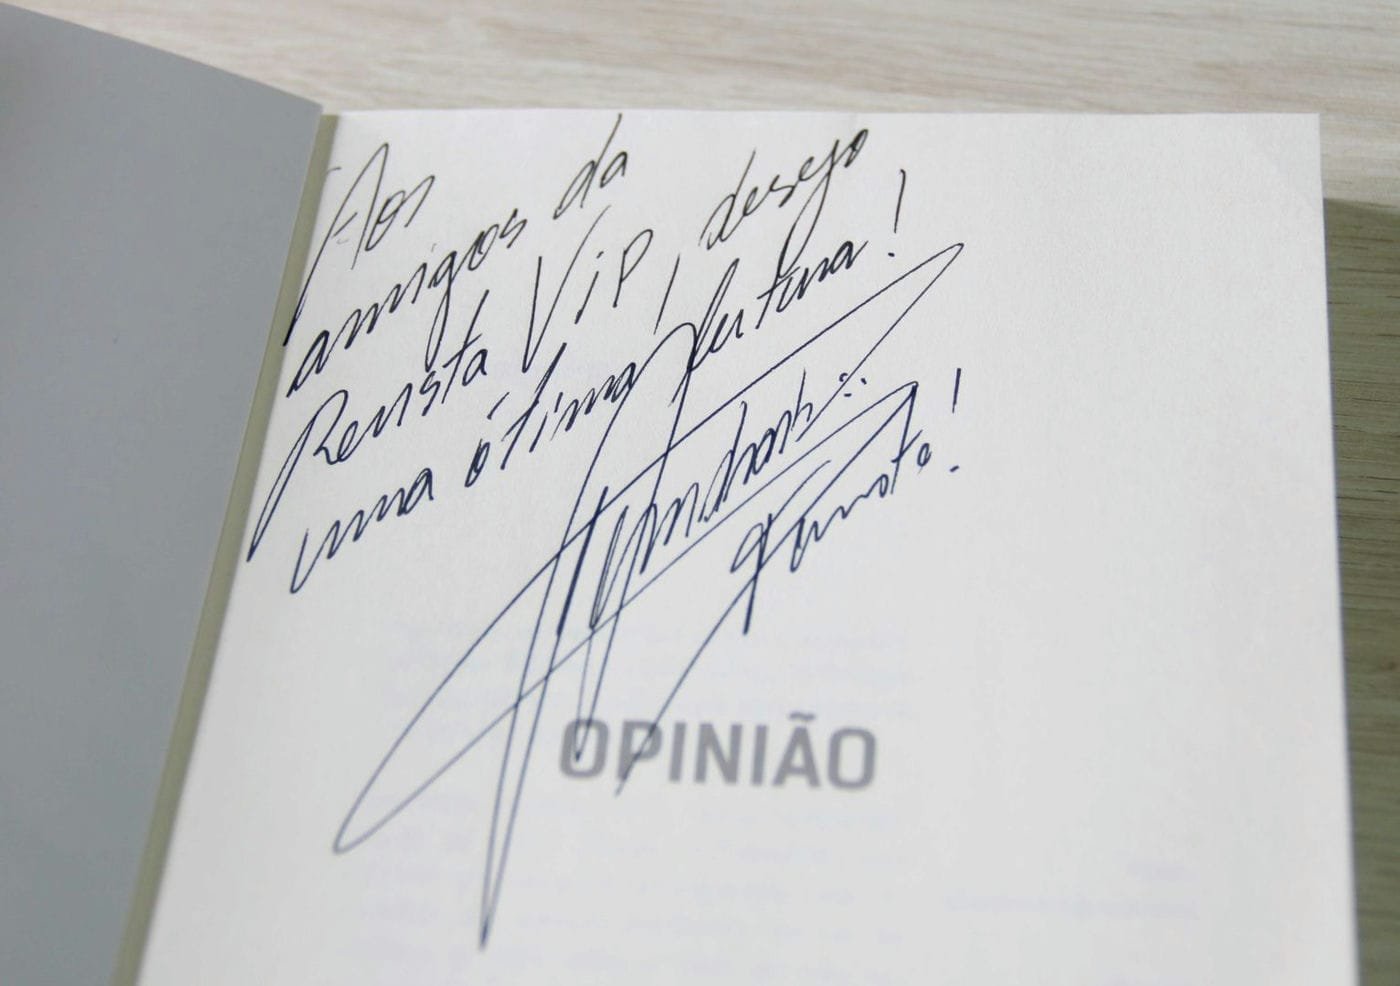 Aos
amigos da
Revista Vip, desejo
uma ótima leitura!
OPINIÃO